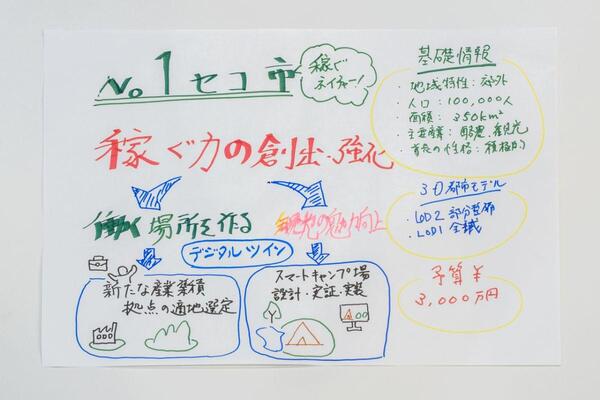 No.1セコ市
稼ぐ
ネイチャー!
稼ぐ力の創出・強化
働く場所を作る
観光の魅力向上
デジタルツイン
新たな産業集積
拠点の適地選定
スマートキャンプ場
設計・実証・実装
基礎情報
・地域特性:郊外
・人口:100,000人
・面積:350km²
・主要産業:農業、観光
・首長の性格:積極的
3D都市モデル
・LOD2 部分整備
・LOD1 全域
予算¥
3,000万円